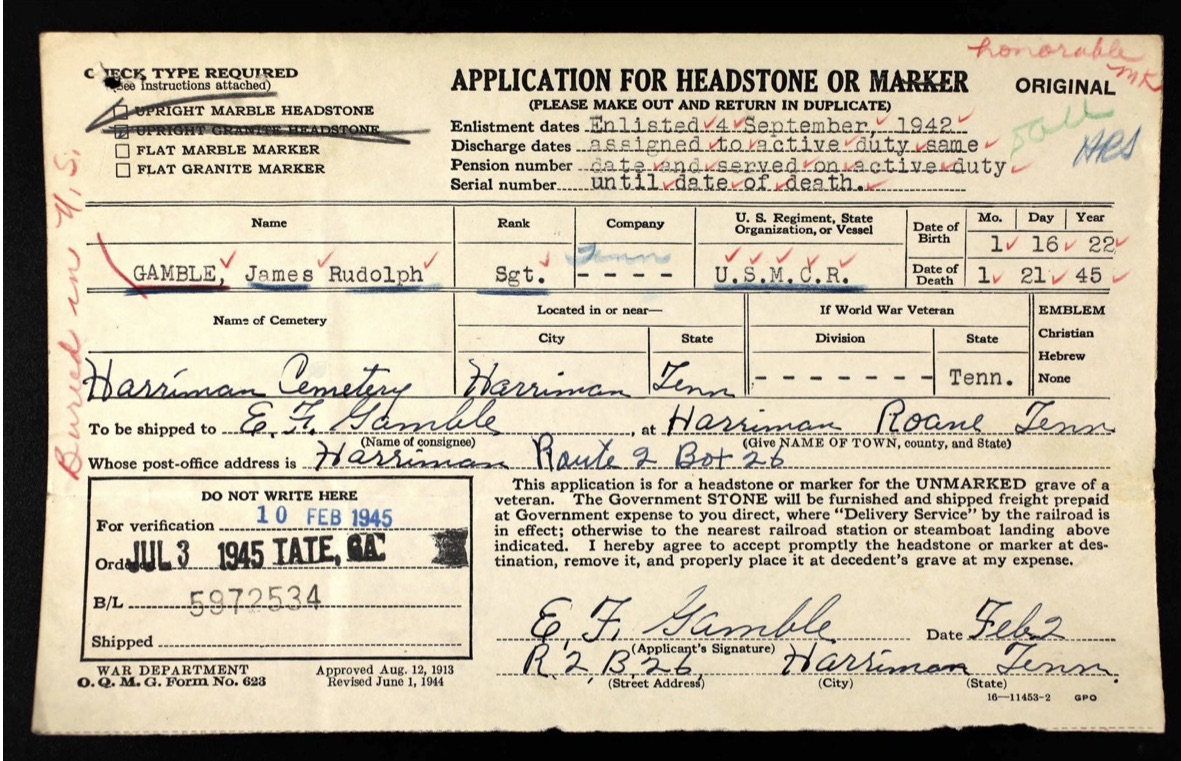 honorable
MK
CHECK TYPE REQUIRED
(See instructions attached)
UPRIGHT MARBLE HEADSTONE
UPRIGHT GRANITE HEADSTONE
FLAT MARBLE MARKER
FLAT GRANITE MARKER
APPLICATION FOR HEADSTONE OR MARKER
(PLEASE MAKE OUT AND RETURN IN DUPLICATE)
ORIGINAL
Enlistment dates Enlisted 4 September, 1942
Discharge dates assigned to active duty same
Pension number date and served on active duty
Serial number until date of death.
HRS
Buried in U.S.
Name Rank Company U. S. Regiment, State Organization, or Vessel Date of Birth Mo. Day Year
1 16 22
Tenn
GAMBLE, James Rudolph Sgt. - - - - U.S.M.C.R. Date of Death 1 21 45
Name of Cemetery Located in or near— If World War Veteran EMBLEM
City State Division State Christian
Hebrew
None
Harriman Cemetery Harriman Tenn - - - - - - - Tenn.
To be shipped to E. F. Gamble, at Harriman Roane Tenn
(Name of consignee) (Give NAME OF TOWN, county, and State)
Whose post-office address is Harriman Route 2 Box 26
DO NOT WRITE HERE
For verification 10 FEB 1945
Ordered JUL 3 1945 TATE, GA.
B/L 5972534
Shipped
WAR DEPARTMENT
O. Q. M. G. Form No. 623
Approved Aug. 12, 1913
Revised June 1, 1944
This application is for a headstone or marker for the UNMARKED grave of a
veteran. The Government STONE will be furnished and shipped freight prepaid
at Government expense to you direct, where "Delivery Service" by the railroad is
in effect; otherwise to the nearest railroad station or steamboat landing above
indicated. I hereby agree to accept promptly the headstone or marker at des-
tination, remove it, and properly place it at decedent's grave at my expense.
E. F. Gamble Date Feb 2
(Applicant's Signature)
R. 2, B. 26 Harriman Tenn.
(Street Address) (City) (State)
16—11453-2 GPO